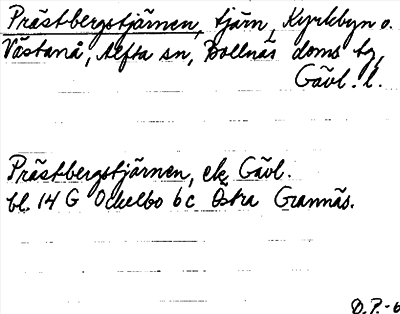 Prästbergstjärnen, tjärn, Kyrkbyn o.
Västanå, Alfta sn, Bollnäs doms tg,
Gävl. l.
Prästbergstjärnen, ek Gävl.
bl. 14 G Ockelbo 6 c Östra Grannäs.
D.P.-6